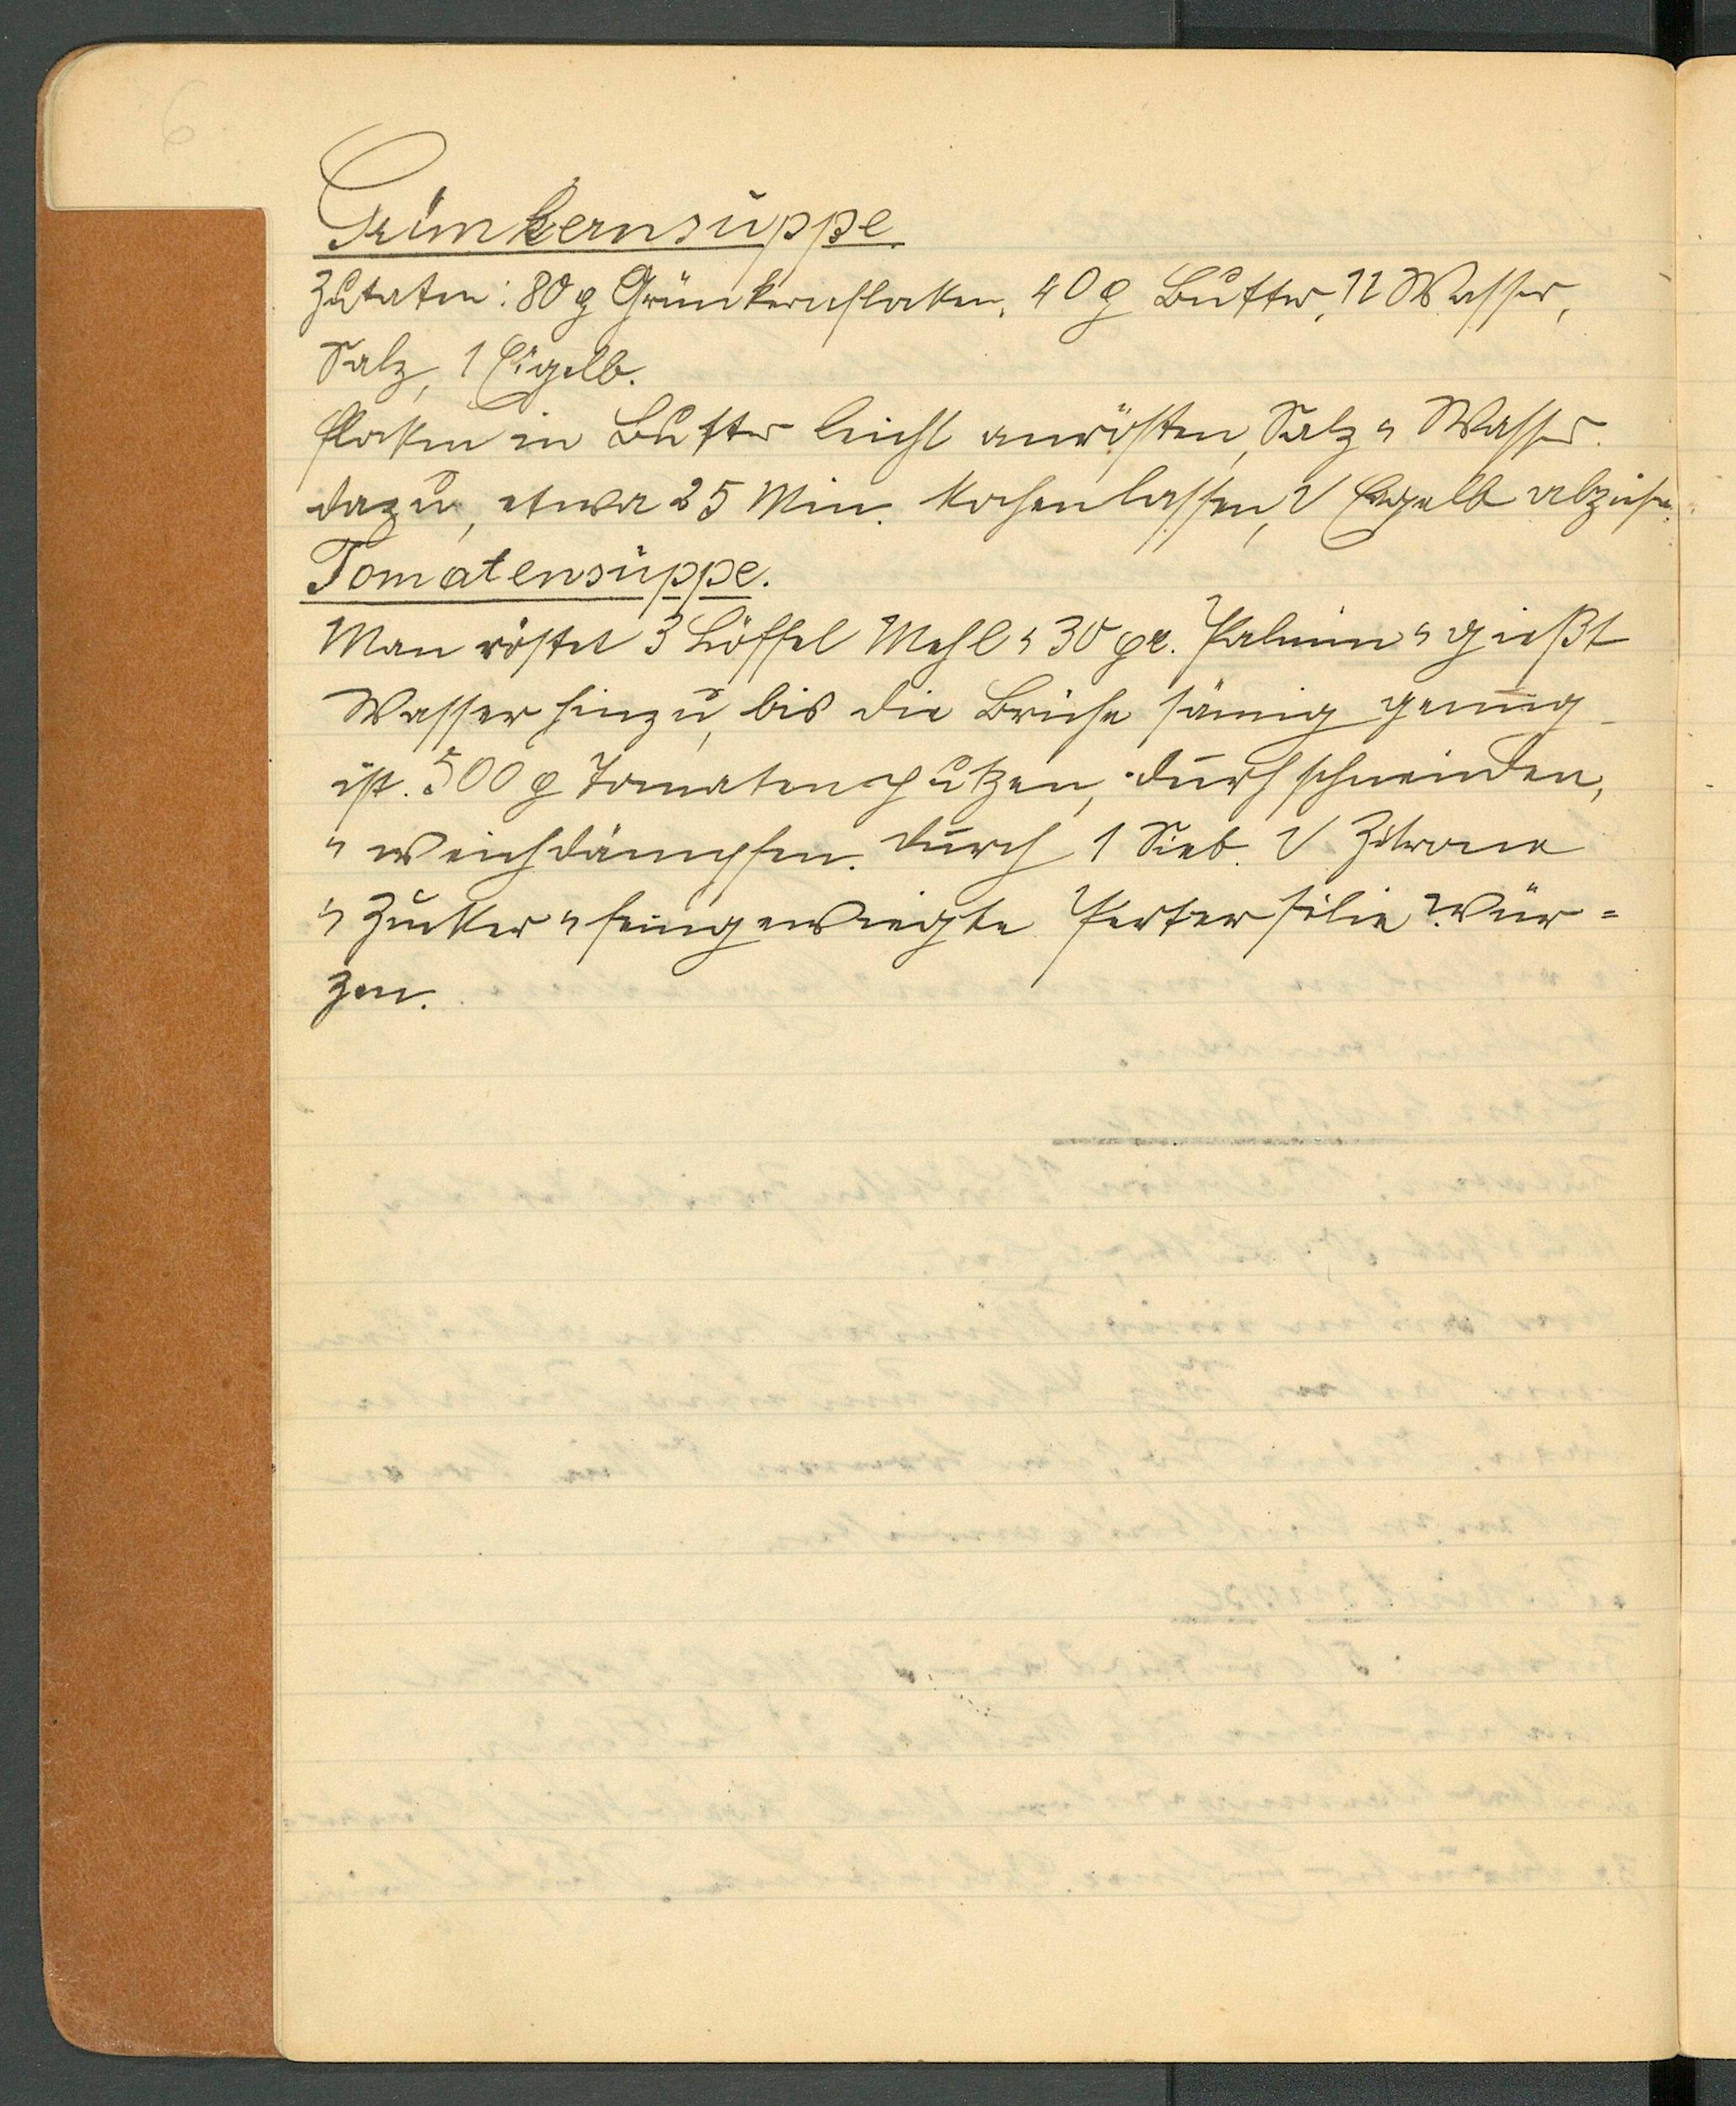 Grünkernsuppe
Zutaten: 80 g Grünkernflocken, 40 g Butter, 1 l Wasser,
Salz, 1 Eigelb.
Flocken in Butter leicht anrösten, Salz u Wasser
dazu, etwa 25 Min. kochen lassen, Eigelb abziehen.
Tomatensuppe.
Man röstet 3 Löffel Mehl u 30 gr. Palmin u gießt
Wasser hinzu, bis die Brühe sämig genug
ist. 500 g Tomaten putzen, durchschneiden,
u weichdämpfen. durch 1 Sieb. Zitrone
u Zucker u feingewiegte Petersilie Wür=
zen.